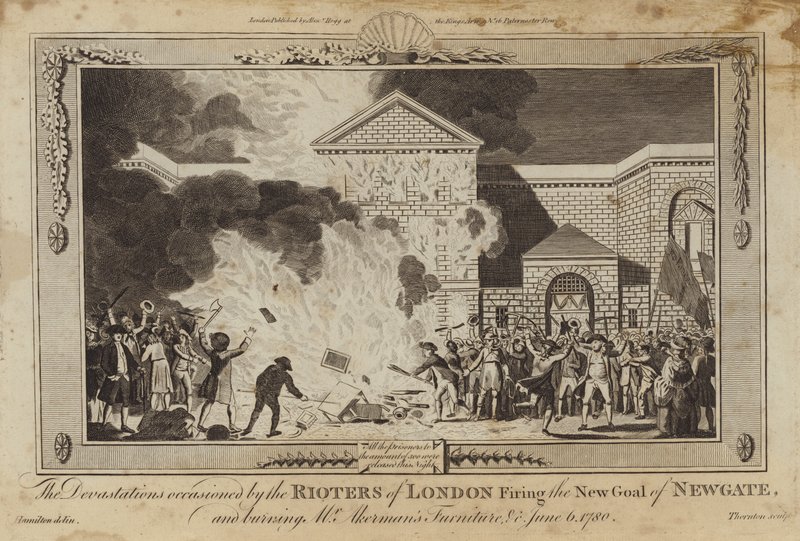 London Published by Alex.r Hogg at the Kings Arms N.o 16 Paternoster Row
All the Prisoners to
the amount of 300 were
released this Night
The Devastations occasioned by the RIOTERS of LONDON Firing the New Goal of NEWGATE,
and burning Mr. Akerman's Furniture, &c. June 6. 1780.
Hamilton delin.
Thornton sculp